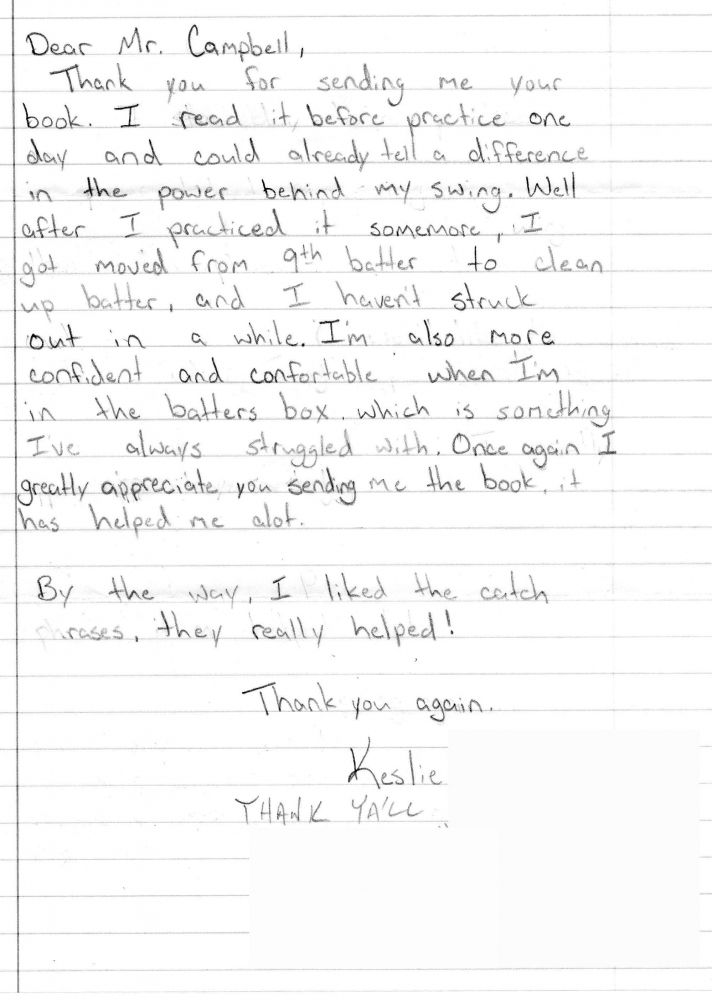 Dear Mr. Campbell,
Thank you for sending me your
book. I read it, before practice one
day and could already tell a difference
in the power behind my swing. Well
after I practiced it somemore, I
got moved from 9th batter to clean
up batter, and I haven't struck
out in a while. I'm also more
confident and confortable when I'm
in the batters box. which is something
I've always struggled with. Once again I
greatly appreciate you sending me the book, it
has helped me alot.
By the way, I liked the catch
phrases, they really helped!
Thank you again.
Keslie
THANK YA'LL